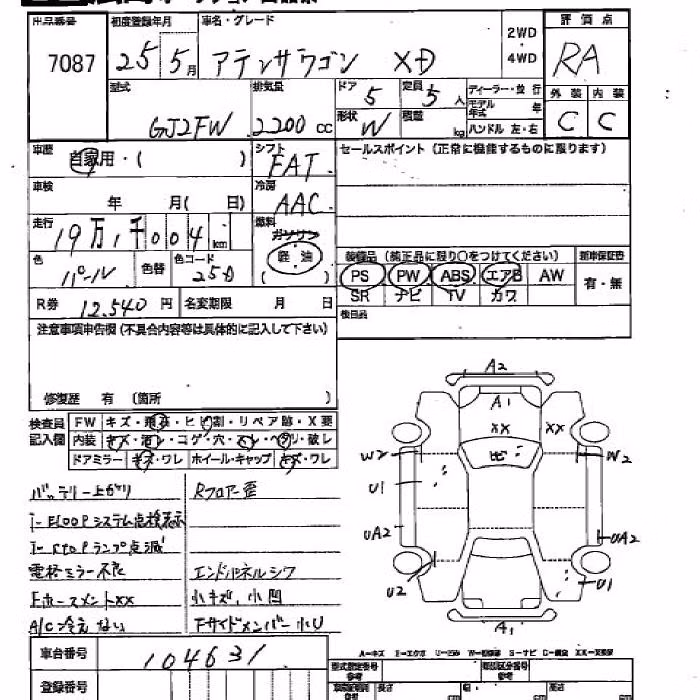 出品番号 初度登録年月 車名・グレード 2WD 評価点
7087 25 5月 アテンザワゴン XD 4WD RA
型式 排気量 ドア 定員 ディーラー・並行 外装 内装
GJ2FW 2200cc 5 5人 モデル年式 年 C C
形状 積載
W kg ハンドル 左・右
車歴 シフト セールスポイント (正常に機能するものに限ります)
自家用・( ) FAT
車検 冷房
年 月( 日) AAC
走行 燃料
19万1千004km ガソリン
色 色替 色コード 軽油 装備品 (純正品に限り○をつけてください) 新車保証書
パール 25D ( ) PS PW ABS エアB AW 有・無
R券 12,540円 名変期限 月 日 SR ナビ TV カワ
注意事項申告欄 (不具合内容等は具体的に記入して下さい) 検目品
修復歴 有 (箇所 )
検査員 FW キズ・飛石・ヒビ割・リペア跡・X要
記入欄 内装 キズ・汚レ・コゲ・穴・スレ・ヘタリ・破レ
ドアミラー キズ・ワレ ホイール・キャップ キズ・ワレ
A2
A1
XX XX
W2 W2
U1
UA2 UA2
U2 U1
A1
バッテリー上がり Rフロアー歪
i-ELOOPシステム点検表示
i-stopランプ点滅
電格ミラー不良 エンドパネルシワ
小キズ、小凹
A/C冷えない Fサイドメンバー小U
車台番号 104631
登録番号
A=キズ
長さ 幅 高さ